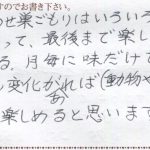 すのでお書き下さい。
わせ巣ごもりはいろいろ
って、最後まで楽し
る。月毎に味だけで
し変化があれば(動物や
楽しめると思います